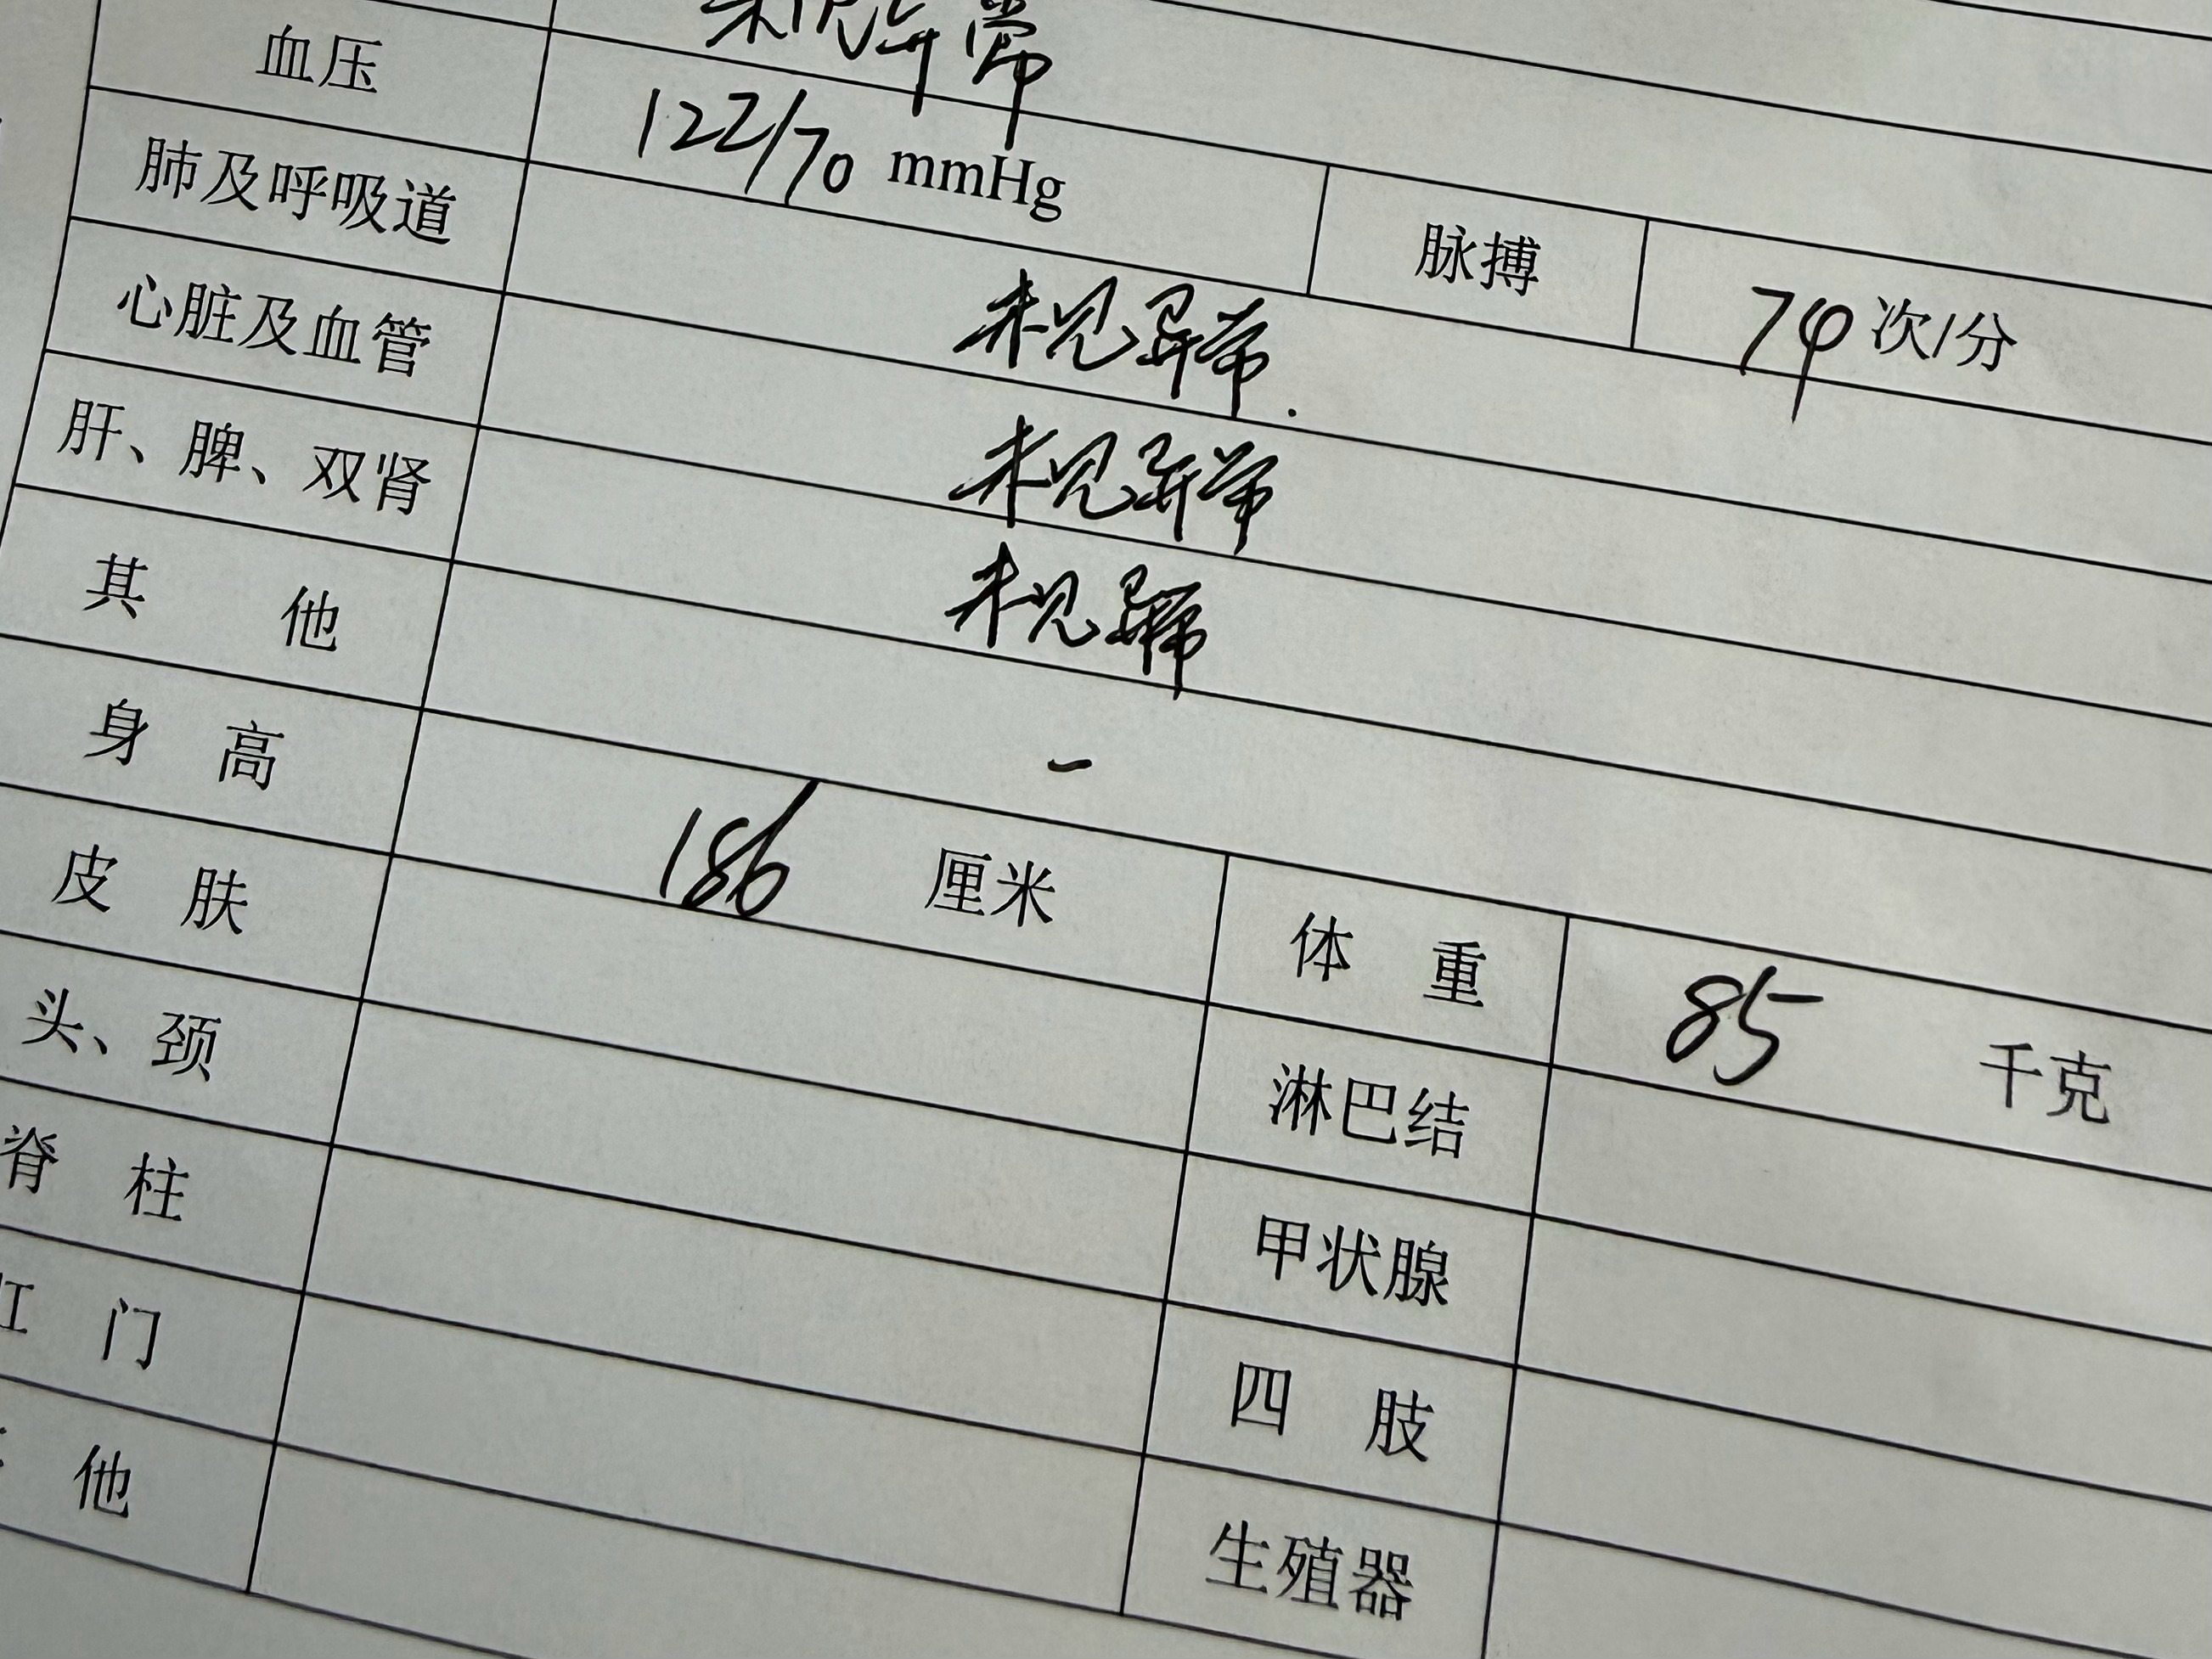 未见异常
血压 122/70 mmHg 脉搏 74 次/分
肺及呼吸道 未见异常.
心脏及血管 未见异常
肝、脾、双肾 未见异常
其他 -
身高 186 厘米 体重 85 千克
皮肤 淋巴结
头、颈 甲状腺
脊柱 四肢
肛门 生殖器
他